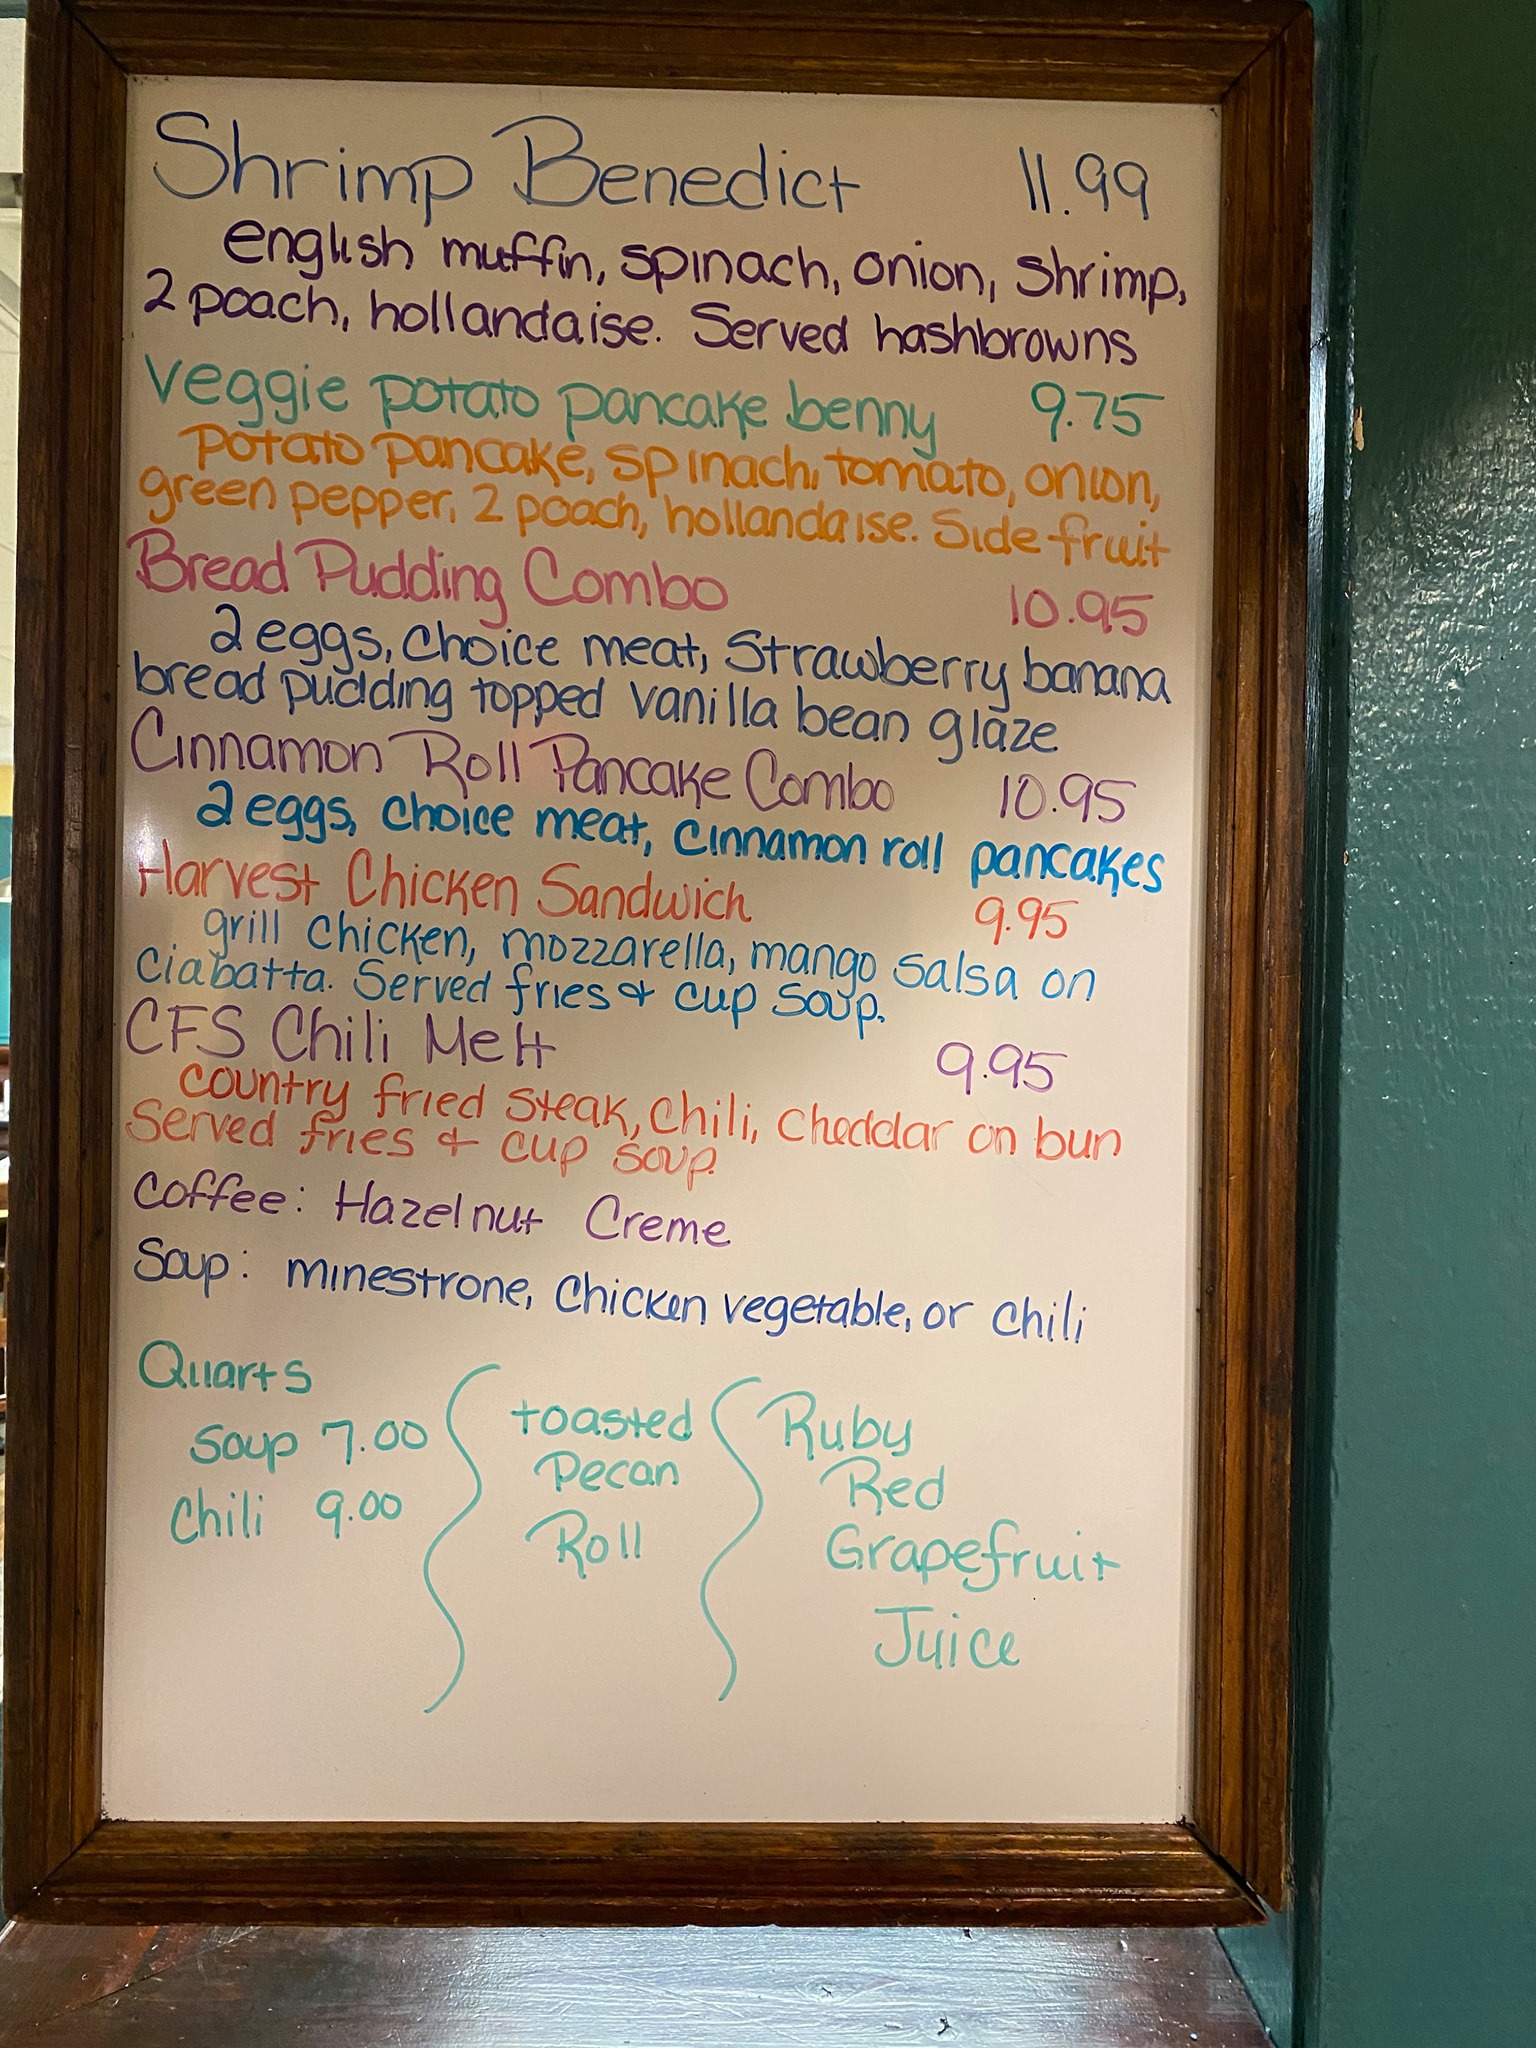 Shrimp Benedict 11.99
english muffin, spinach, onion, shrimp,
2 poach, hollandaise. Served hashbrowns
veggie potato pancake benny 9.75
potato pancake, spinach, tomato, onion,
green pepper, 2 poach, hollandaise. Side fruit
Bread Pudding Combo 10.95
2 eggs, choice meat, Strawberry banana
bread pudding topped vanilla bean glaze
Cinnamon Roll Pancake Combo 10.95
2 eggs, choice meat, cinnamon roll pancakes
Harvest Chicken Sandwich 9.95
grill chicken, mozzarella, mango salsa on
ciabatta. Served fries & cup soup.
CFS Chili Melt 9.95
country fried steak, chili, cheddar on bun
Served fries & cup soup.
Coffee: Hazelnut Creme
Soup: minestrone, chicken vegetable, or chili
Quarts
Soup 7.00
Chili 9.00
toasted
Pecan
Roll
Ruby
Red
Grapefruit
Juice